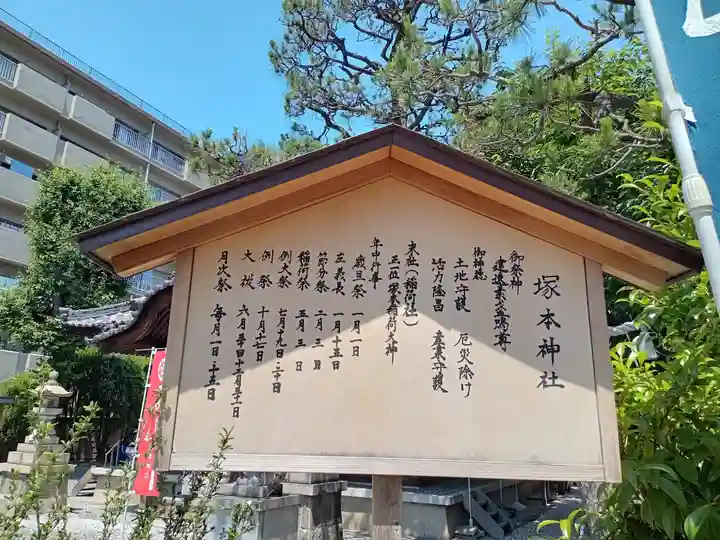 塚本神社
御祭神
建速素盞嗚尊
御神徳
土地守護 厄災除け
活力隆昌 産業守護
末社(稲荷社)
正一位 稲荷大神
年中行事
歳旦祭 一月一日
左義長 一月十五日
節分祭 二月三日
稲荷祭 五月三日
例大祭 七月十九日、二十日
例祭 十月十七日
大祓 六月三十日 十二月三十一日
月次祭 毎月一日、十五日